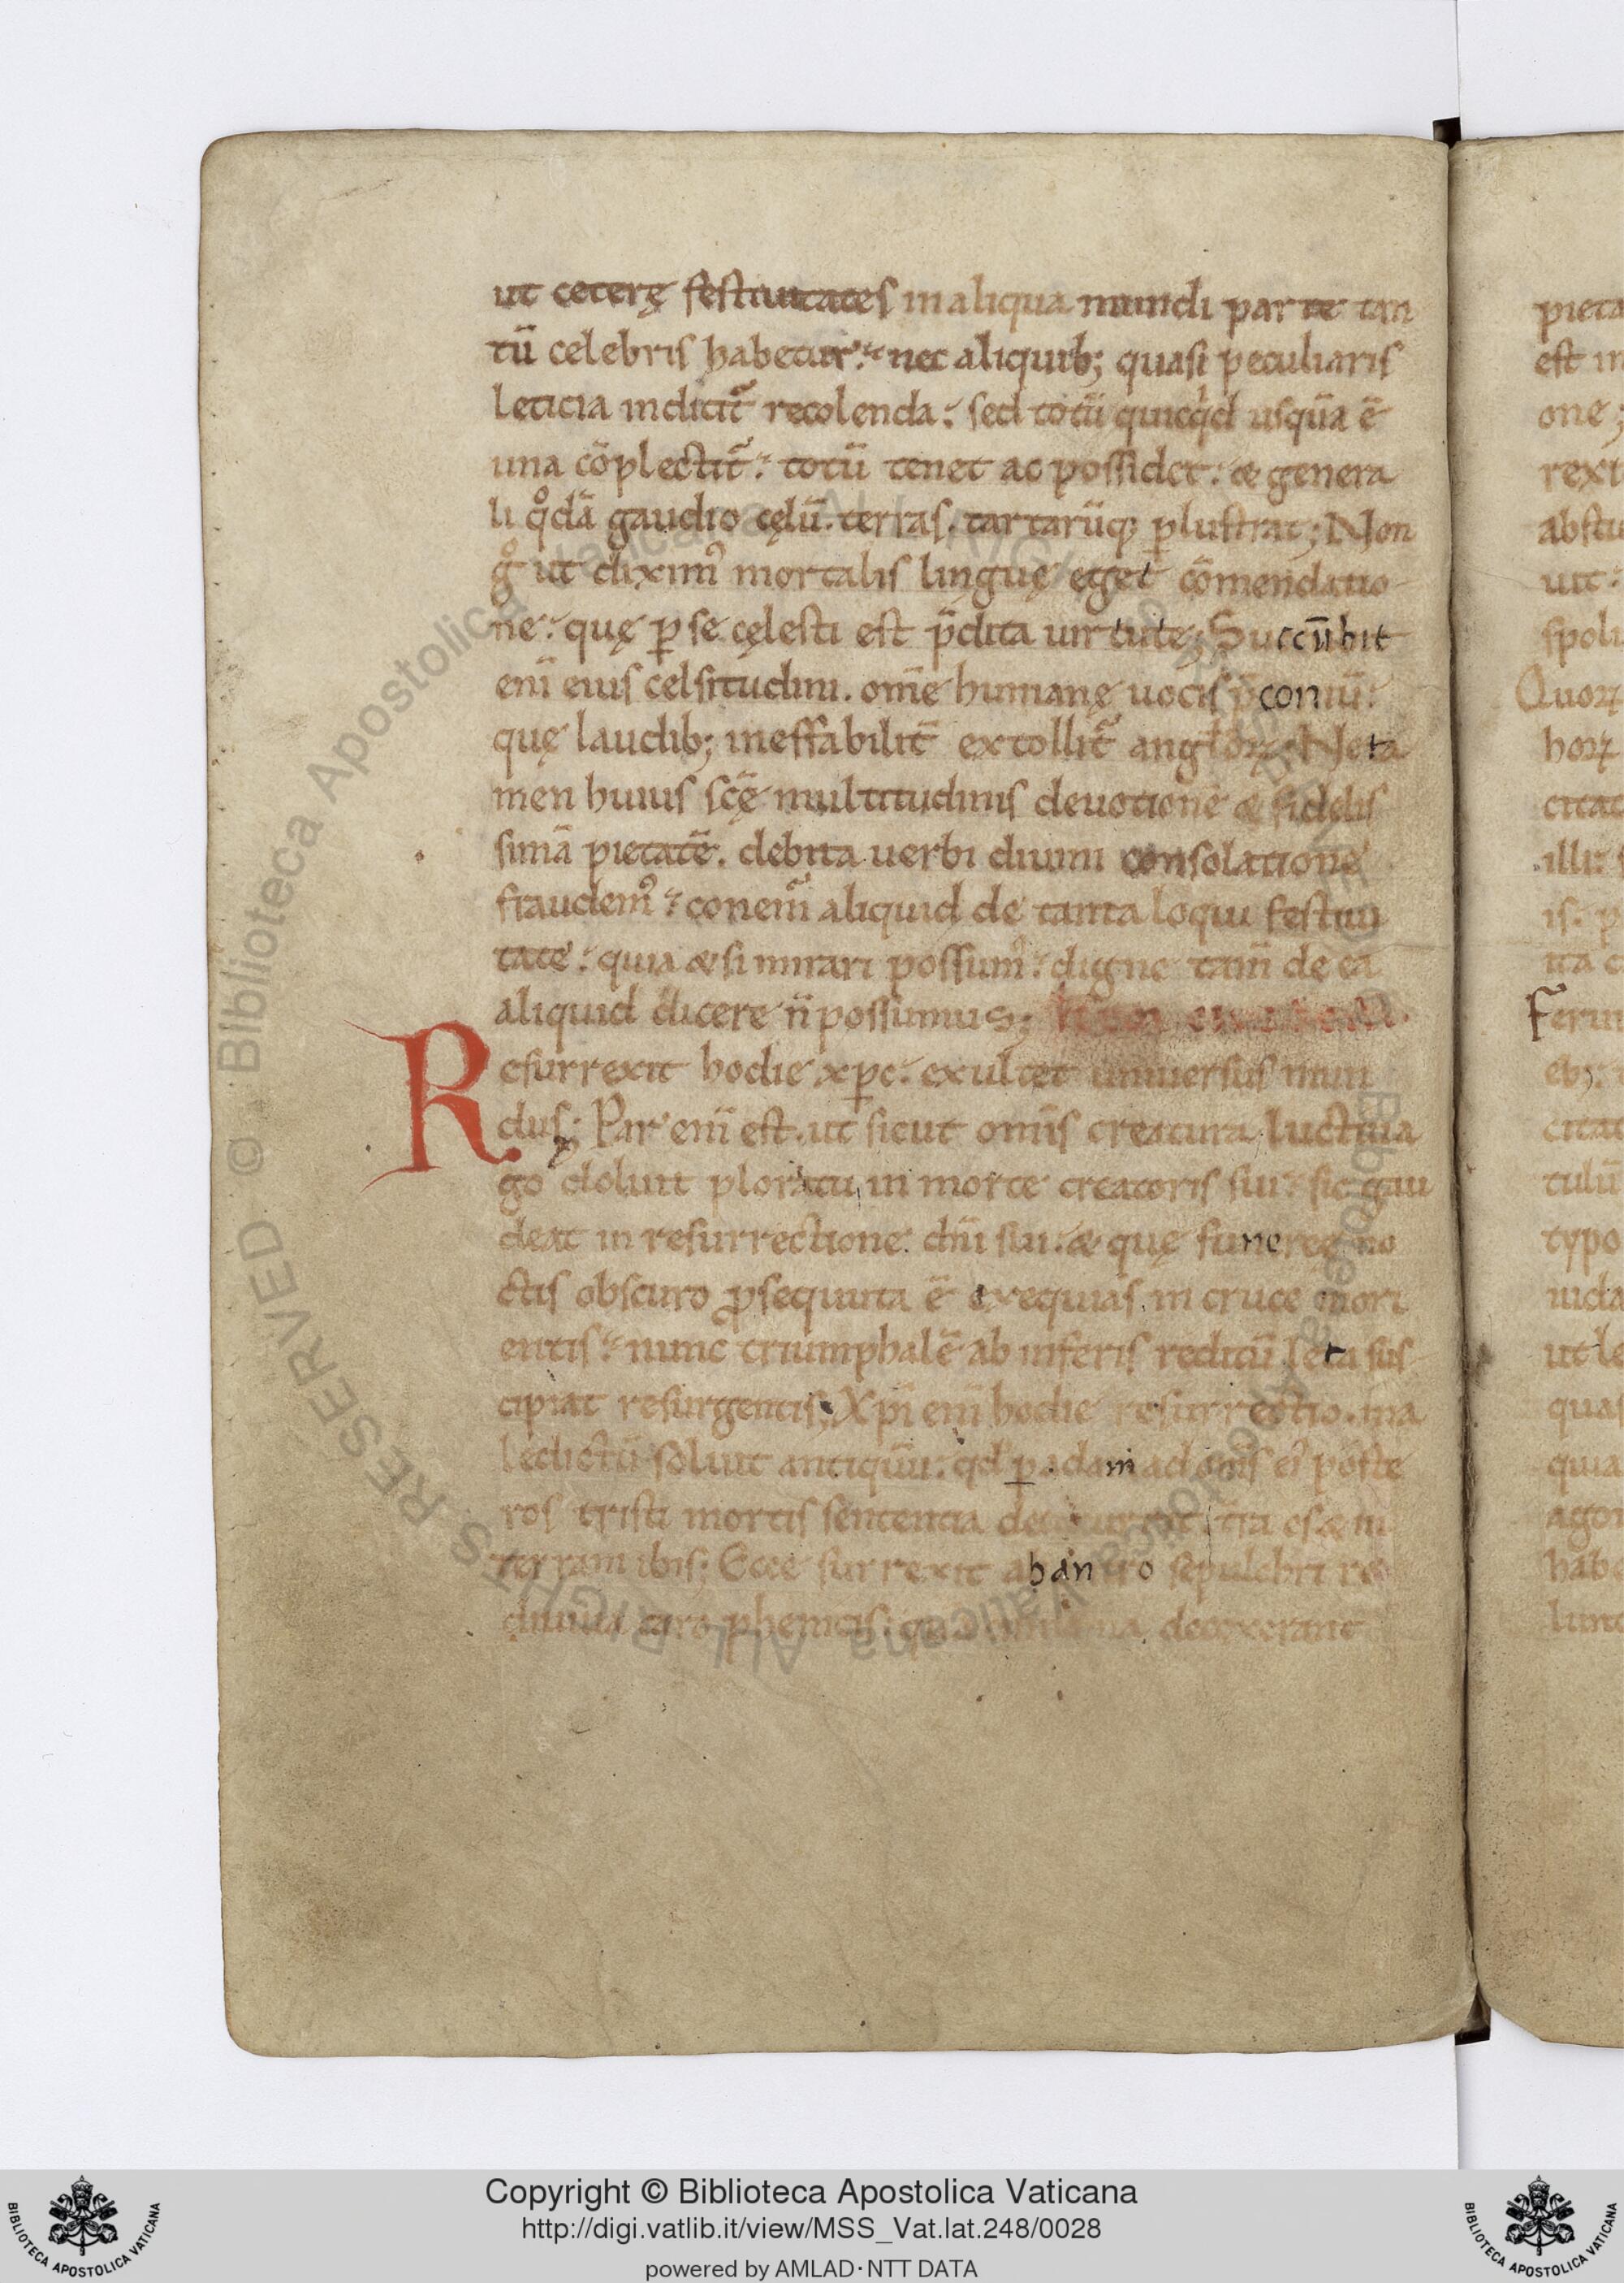 ut ceterę festiuitates in aliqua mundi parte tan
tū celebris habetur: nec aliquib; quasi peculiaris
leticia indicit̄ recolenda: sed totū quicq̇d usquā ē
una cōplectit̄: totū tenet ac possidet: & genera
li q̊dā gaudio cęlū. terras. tartarūq; p̱lustrat; Non
g̊ ut diximꝰ mortalis linguę eget cōmendatio
ne: quę p̱ se cęlesti est p̄dita uirtute; Succūbit
enī eius celsitudini. om̄e humanę uocis p̄coniū:
quę laudib; ineffabilit̄ extollit̄ angłoꝝ; Ne ta
men huius sc̄ę multitudinis deuotione & fidelis
simā pietatē. debita uerbi diuini consolatione
fraudemꝰ: conem̄ aliquid de tanta loqui festiui
tate: quia & si mirari possumꝰ: digne tam̄ de ea
aliquid dicere n̄ possumus;
Resurrexit hodie xp̄c: exultet uniuersus mun
dus; Par enī est. ut sicut om̄is creatura luctiua
go doluit ploratu in morte creatoris sui: sic gau
deat in resurrectione dn̄i sui: & quę funeręę no
ctis obscuro ꝓsequuta ē exequias in cruce mori
entis: nunc triumphalē ab inferis reditū leta sus
cipiat resurgentis; Xp̄i enī hodie resurrectio. ma
ledictū soluit antiquū: qd̄ p̱ adam ad om̄s eiꝰ poste
ros tristi mortis sententia t̄ra es & in
terram ibis; Ecce surrexit ab antro sepulchri re
diuiua caro phenicis: decoxerant
pieta
est in
one;
rexi
abstu
uit:
spoli
Quoꝝ
hoꝝ
citat
illi: s
is. p
ita c
Ferun
eb;
citat
tulū
typo
uida
ut le
quas
quia
agon
habe
lunt
Copyright © Biblioteca Apostolica Vaticana
http://digi.vatlib.it/view/MSS_Vat.lat.248/0028
powered by AMLAD·NTT DATA
BIBLIOTECA APOSTOLICA VATICANA
BIBLIOTECA APOSTOLICA VATICANA